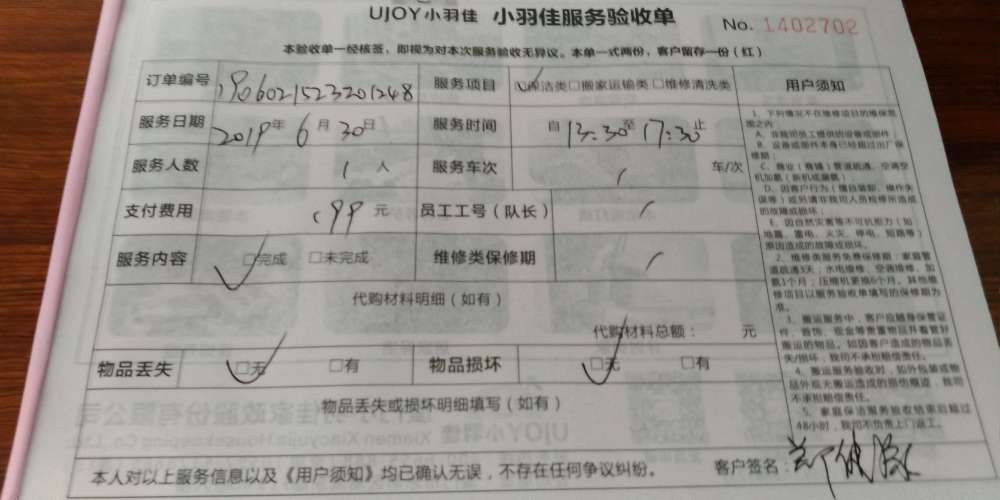 UJOY小羽佳 小羽佳服务验收单 No. 1402702
本验收单一经核签，即视为对本次服务验收无异议。本单一式两份，客户留存一份（红）
订单编号 1906021523201248 服务项目 ☑保洁类□搬家运输类□维修清洗类
服务日期 2019年6月30日 服务时间 自13:30至17:30止
服务人数 1人 服务车次 / 车/次
支付费用 199元 员工工号（队长） /
服务内容 ☑完成 □未完成 维修类保修期 /
代购材料明细（如有）
代购材料总额： 元
物品丢失 ☑无 □有 物品损坏 ☑无 □有
物品丢失或损坏明细填写（如有）
本人对以上服务信息以及《用户须知》均已确认无误，不存在任何争议纠纷。 客户签名：
用户须知
1、下列情况不在维修项目的维保范
围之内
A、非我司员工提供的设备或部件
B、设备或部件本身已经超过出厂保
修期；
C、商业（商铺）管道疏通、空调空
机加氨（新机或漏氨）
D、因客户行为（擅自装卸、操作失
误等）或另请非我司人员检修所造成
的故障或损坏；
E、因自然灾害等不可抗能力（如
地震、雷电、火灾、停电、短路等）
原因造成的故障或损坏。
2、维修类服务免费保修期：家庭管
道疏通3天；水电维修、空调维修、加
氨1个月；压缩机更换6个月。其他维
修项目以服务验收单填写的保修期为
准。
3、搬运服务中，客户应随身保管证
件、首饰、现金等贵重物品并看管好
搬运的物品。如因客户造成的物品丢
失/损坏，我司不承担赔偿责任。
4、搬运服务验收时，如外包装或物
品外观无搬运造成的损伤痕迹，我司
不承担赔偿责任。
5、家庭保洁服务验收结束后超过
48小时，我司不负责上门返工。